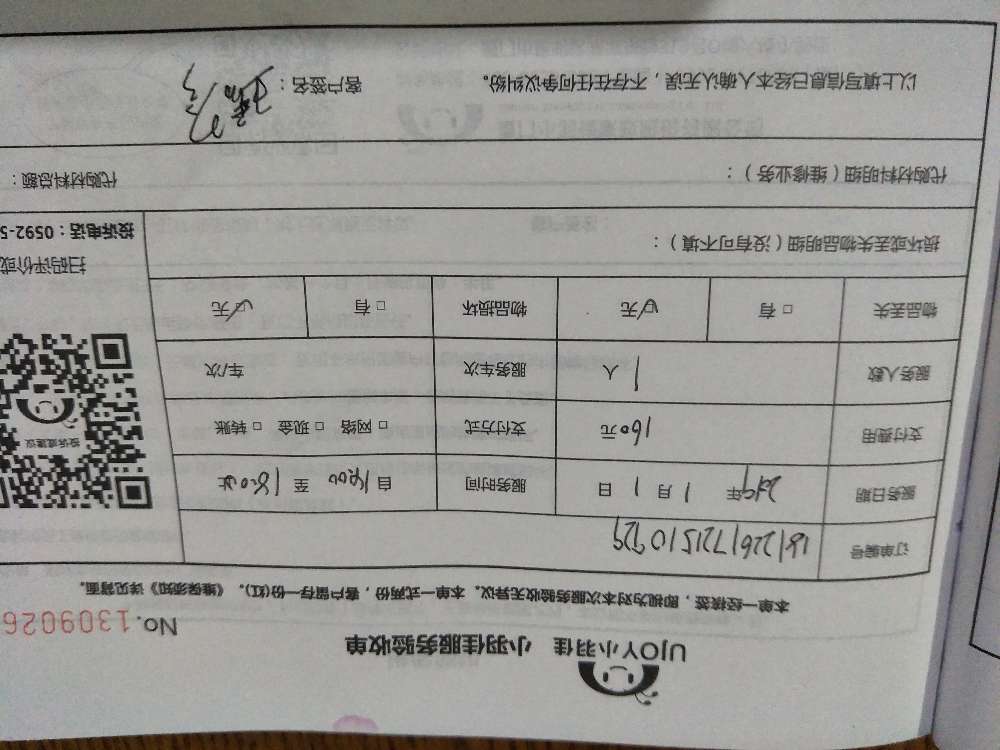 UJOY小羽佳 小羽佳服务验收单
No.1309026
本单一经接签,即视为对本次服务验收无异议。本单一式两份,客户留存一份(红)。《维保须知》详见背面。
订单编号 18122617215101929
服务日期 2019年 1月 1日 服务时间 自14:00 至18:00止
支付费用 160元 支付方式 □ 网络 □ 现金 □ 转账
服务人数 1人 服务车次 车/次
物品丢失 □ 有 ☑无 物品损坏 □ 有 ☑无
投诉或建议
损坏或丢失物品明细(没有可不填):
扫码评价或
投诉电话:0592-5
代购材料明细(维修业务): 代购材料总额:
以上填写信息已经本人确认无误,不存在任何争议纠纷。 客户签名: